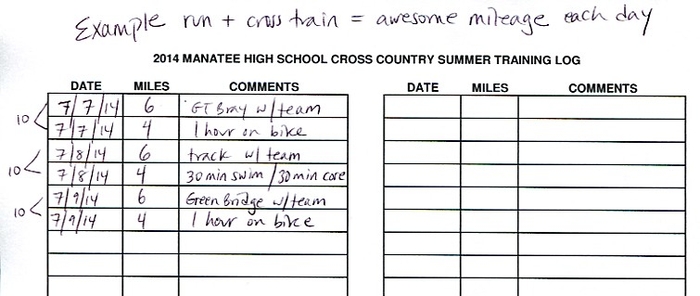 Example run + cross train = awesome mileage each day
2014 MANATEE HIGH SCHOOL CROSS COUNTRY SUMMER TRAINING LOG
DATE MILES COMMENTS DATE MILES COMMENTS
7/7/14 6 GT Bray w/team
10
7/7/14 4 1 hour on bike
7/8/14 6 track w/ team
10
7/8/14 4 30 min swim / 30 min core
7/9/14 6 Green Bridge w/team
10
7/9/14 4 1 hour on bike